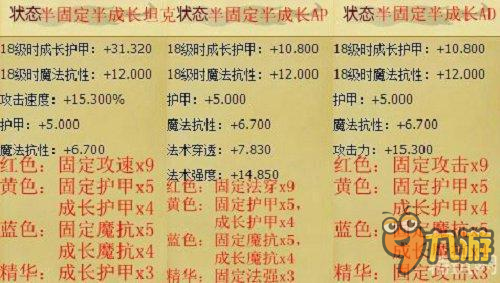 状态半固定半成长坦克
18级时成长护甲：+31.320
18级时魔法抗性：+12.000
攻击速度：+15.300%
护甲：+5.000
魔法抗性：+6.700
红色：固定攻速x9
黄色：固定护甲x5
成长护甲x4
蓝色：固定魔抗x5
成长魔抗x4
精华：成长护甲x3
状态半固定半成长AP
18级时成长护甲：+10.800
18级时魔法抗性：+12.000
护甲：+5.000
魔法抗性：+6.700
法术穿透：+7.830
法术强度：+14.850
红色：固定法穿x9
黄色：固定护甲x5，
成长护甲x4
蓝色：固定魔抗x5，
成长魔抗x4
精华：固定法强x3
状态半固定半成长AD
18级时成长护甲：+10.800
18级时魔法抗性：+12.000
护甲：+5.000
魔法抗性：+6.700
攻击力：+15.300
红色：固定攻击x9
黄色：固定护甲x5
成长护甲x4
蓝色：固定魔抗x5
成长魔抗x4
精华：固定攻击x3
九游